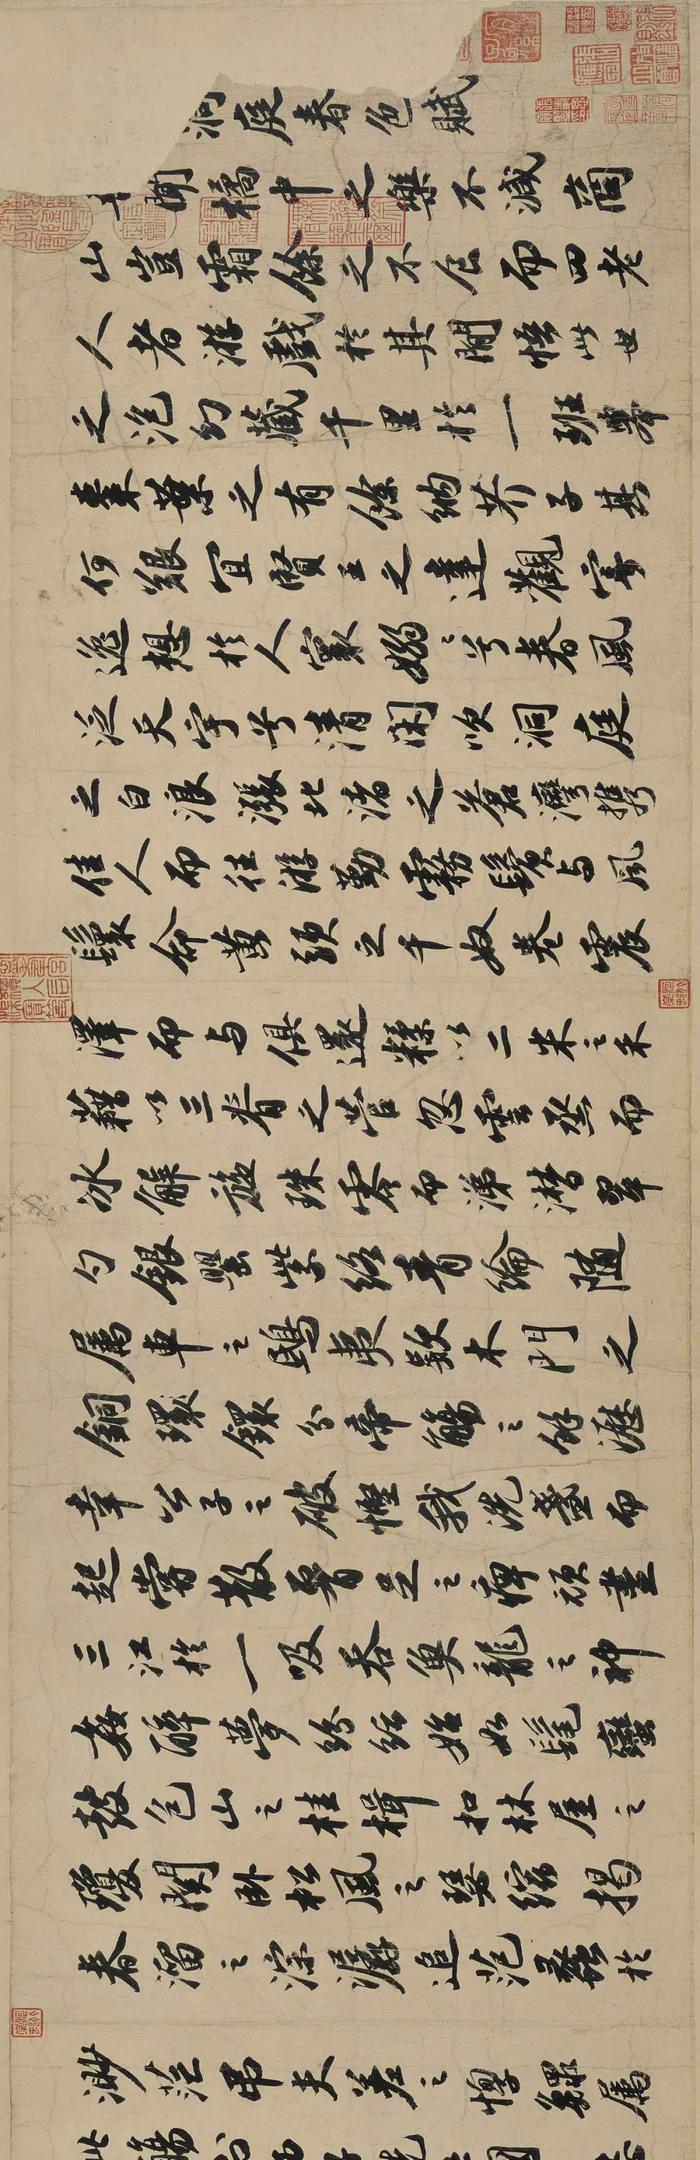 洞庭春色賦
聞橘中之樂不減商
山豈霜餘之不食而四老
人者游戲於其間悟此世
之泡幻藏千里於一班舉
棗葉之有餘納芥子其
何艱宜賢王之達觀寄
逸想於人寰嫋々兮春風
泛天宇兮清閑吹洞庭
之白浪漲北渚之蒼灣攜
佳人而往游勤霧鬢与風
鬟命黃頭之千奴卷震
澤而与俱還糅以二米之禾
藉以三脊之菅忽雲烝而
冰解旋珠零而涕潸翠
勺銀罌紫絡青綸隨
屬車之鴟夷款木門之
銅環鐶分帝觴之餘瀝
幸公子之破慳我洗盞而
起嘗散腰足之痺頑盡
三江於一吸吞魚龍之神
姦醉夢紛紜始如髦蠻
鼓包山之桂楫扣林屋之
瓊關臥松風之瑟縮揭
春溜之淙潺追范蠡於
渺茫弔夫差之惸鰥屬
此觴